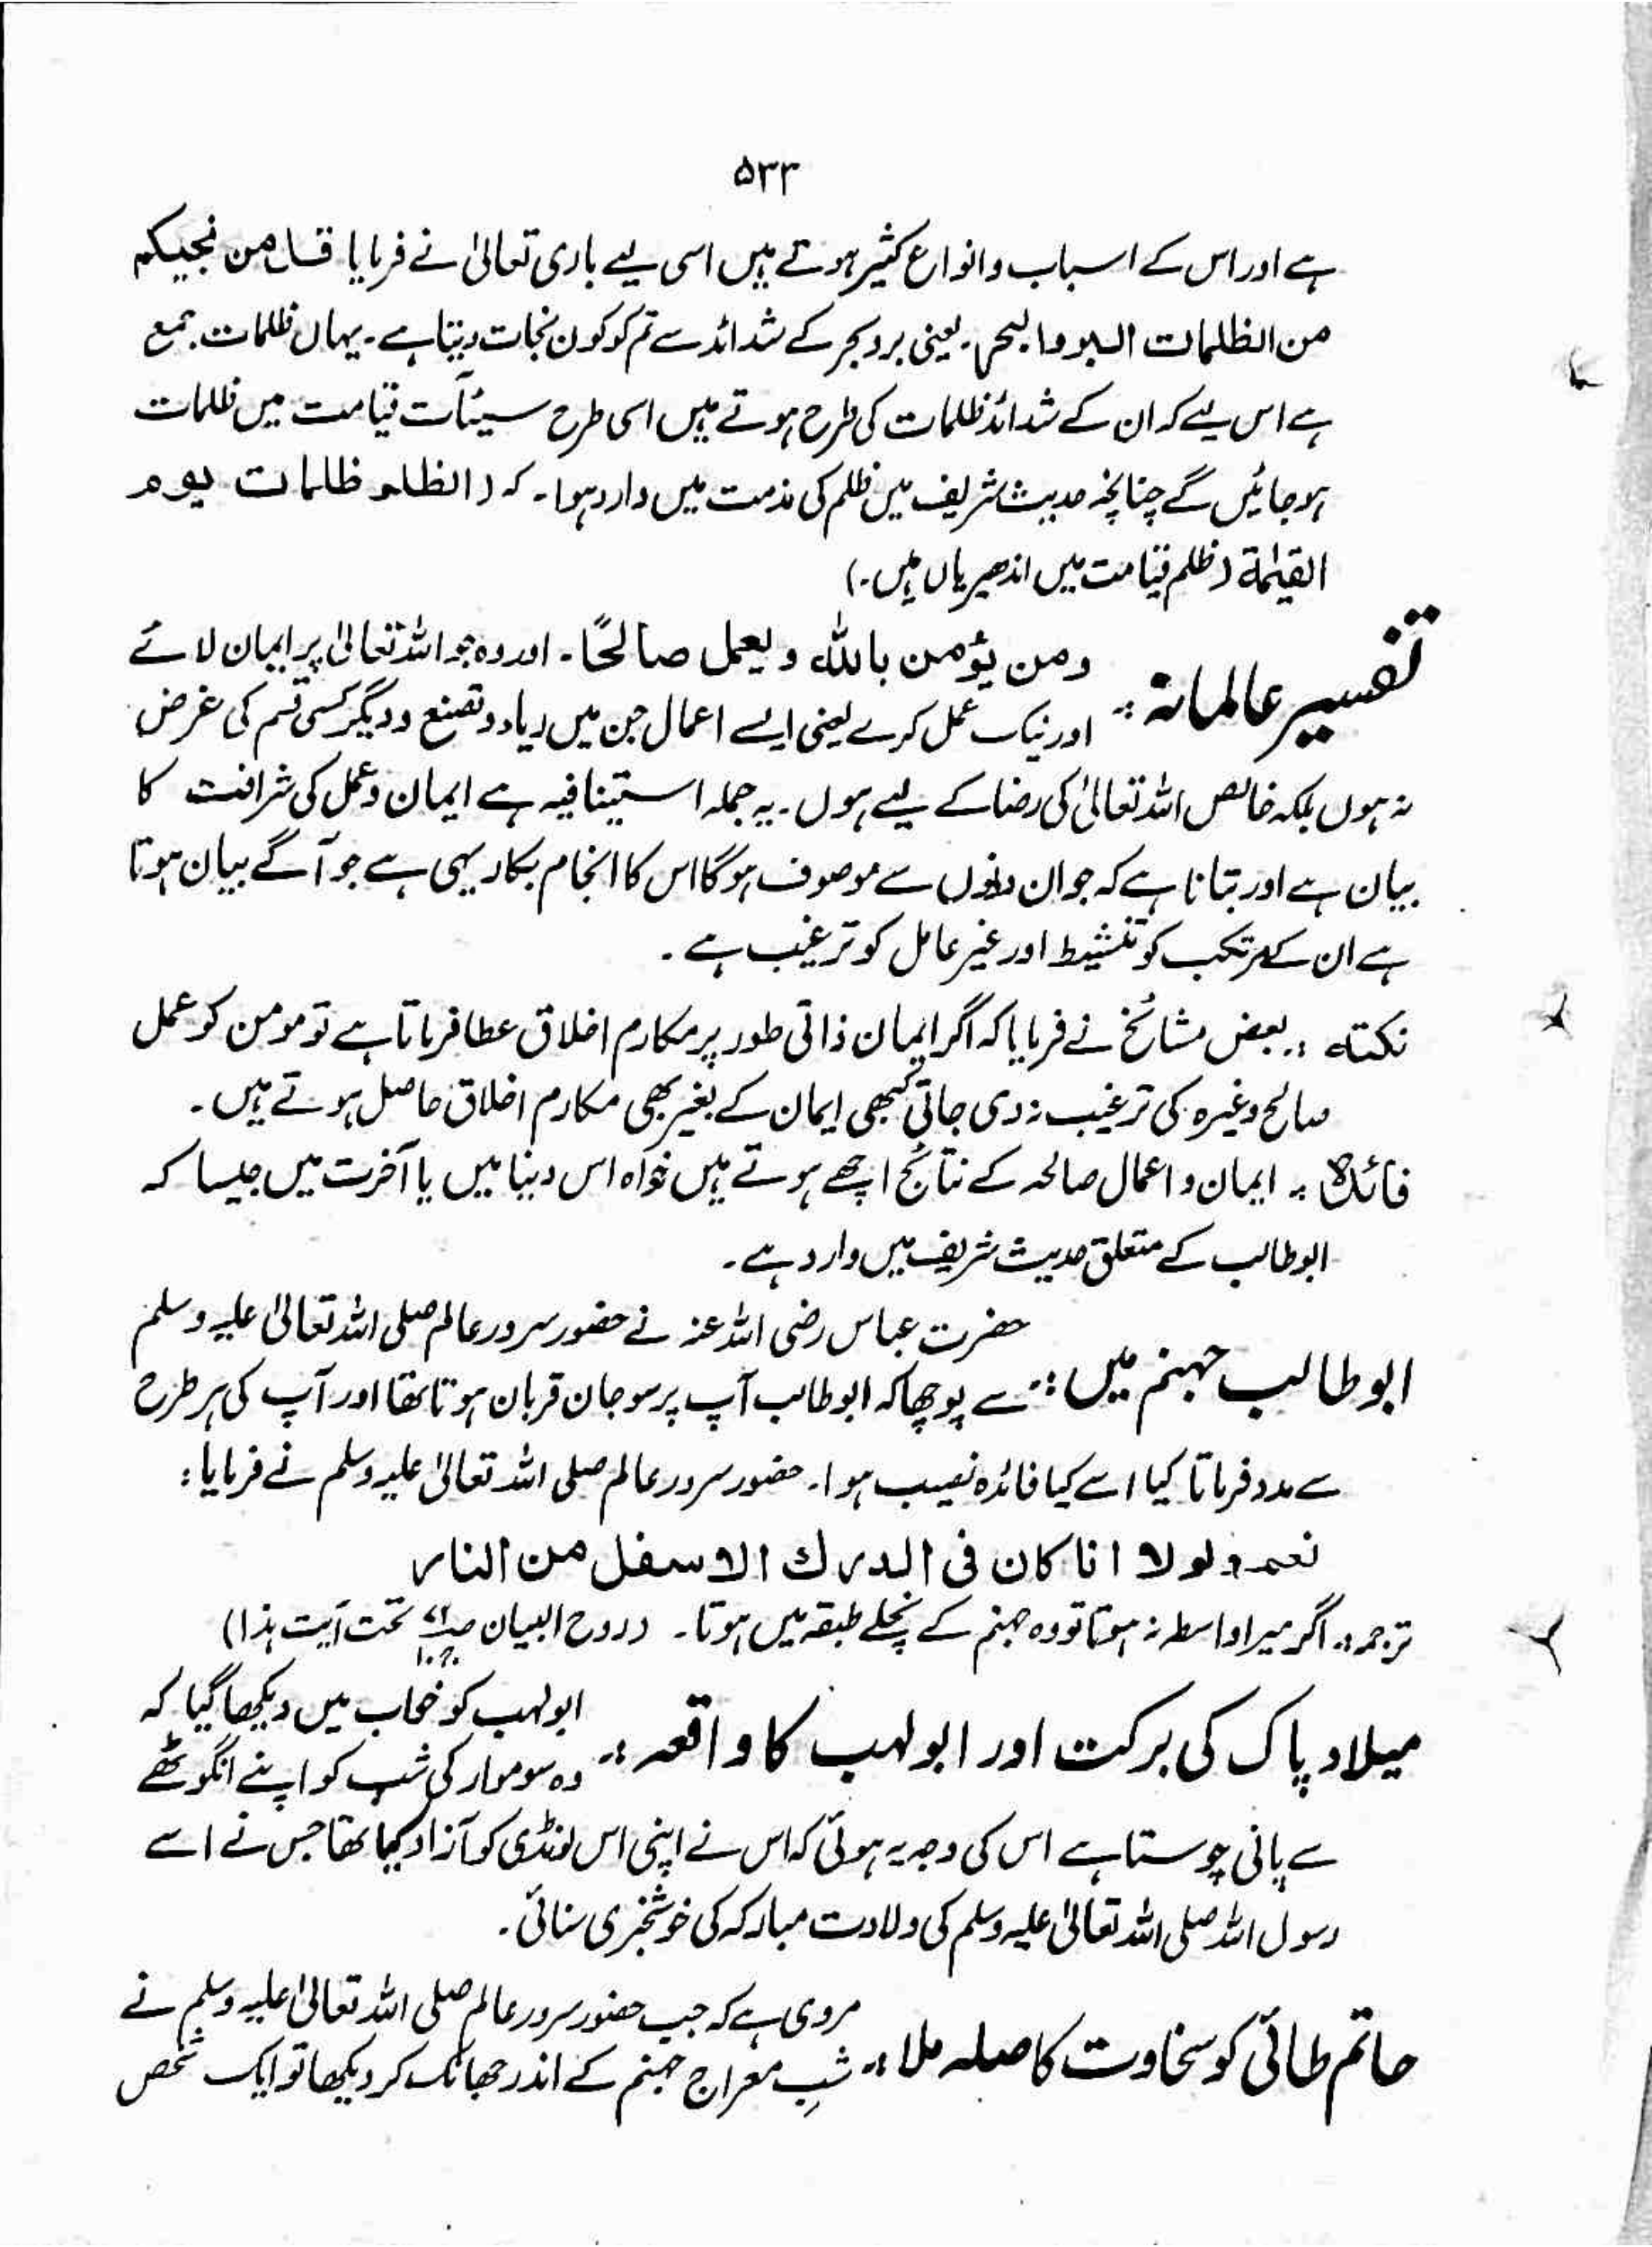 ۵۳۳
ہے اور اس کے اسباب و انواع کثیر ہوتے ہیں اسی لیے باری تعالیٰ نے فرمایا قل من نجیکم
من الظلمات البر والبحر۔ یعنی بر و بحر کے شدائد سے تم کو کون نجات دیتا ہے۔ یہاں ظلمات جمع
ہے اس لیے کہ ان کے شدائد ظلمات کی طرح ہوتے ہیں اسی طرح سیئآت قیامت میں ظلمات
ہو جائیں گے چنانچہ حدیث شریف میں ظلم کی مذمت میں وارد ہوا۔ کہ (الظلم ظلمات یوم
القیٰمۃ (ظلم قیامت میں اندھیریاں ہیں۔)
تفسیر عالمانہ :۔ ومن یؤمن باللہ و یعمل صالحًا۔ اور وہ جو اللہ تعالیٰ پر ایمان لائے
اور نیک عمل کرے یعنی ایسے اعمال جن میں ریاء و تصنع و دیگر کسی قسم کی غرض
نہ ہوں بلکہ خالص اللہ تعالیٰ کی رضا کے لیے ہوں۔ یہ جملہ استینافیہ ہے ایمان و عمل کی شرافت کا
بیان ہے اور بتانا ہے کہ جو ان دونوں سے موصوف ہوگا اس کا انجام بکار یہی ہے جو آگے بیان ہوتا
ہے ان کے مرتکب کو تنشیط اور غیر عامل کو ترغیب ہے۔
نکتہ :۔ بعض مشائخ نے فرمایا کہ اگر ایمان ذاتی طور پر مکارم اخلاق عطا فرماتا ہے تو مومن کو عمل
صالح وغیرہ کی ترغیب نہ دی جاتی کبھی ایمان کے بغیر بھی مکارم اخلاق حاصل ہوتے ہیں۔
فائدہ :۔ ایمان و اعمال صالحہ کے نتائج اچھے ہوتے ہیں خواہ اس دنیا میں یا آخرت میں جیسا کہ
ابوطالب کے متعلق حدیث شریف میں وارد ہے۔
ابوطالب جہنم میں :۔ حضرت عباس رضی اللہ عنہ نے حضور سرور عالم صلی اللہ تعالیٰ علیہ وسلم
سے پوچھا کہ ابوطالب آپ پر سو جان قربان ہوتا تھا اور آپ کی ہر طرح
سے مدد فرماتا کیا اسے کیا فائدہ نصیب ہوا۔ حضور سرور عالم صلی اللہ تعالیٰ علیہ وسلم نے فرمایا:
نعم و لولا انا کان فی الدرک الاسفل من النار
ترجمہ:۔ اگر میرا واسطہ نہ ہوتا تو وہ جہنم کے نچلے طبقہ میں ہوتا۔ (روح البیان تحت آیت ہذا)
میلاد پاک کی برکت اور ابولہب کا واقعہ :۔ ابولہب کو خواب میں دیکھا گیا کہ
وہ سوموار کی شب کو اپنے انگوٹھے
سے پانی چوستا ہے اس کی وجہ یہ ہوئی کہ اس نے اپنی اس لونڈی کو آزاد کیا تھا جس نے اسے
رسول اللہ صلی اللہ تعالیٰ علیہ وسلم کی ولادت مبارکہ کی خوشخبری سنائی۔
حاتم طائی کو سخاوت کا صلہ ملا :۔ مروی ہے کہ جب حضور سرور عالم صلی اللہ تعالیٰ علیہ وسلم نے
شبِ معراج جہنم کے اندر جھانک کر دیکھا تو ایک شخص